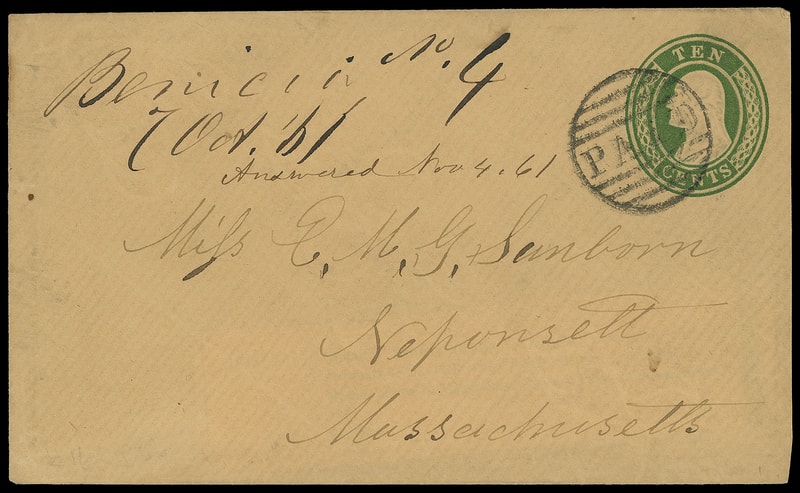 Benicia No. 4
7 Oct. '61
Answered Nov 4. 61
TEN
CENTS
PAID
Miss E. M. G. Sanborn
Neponsett
Massachusetts